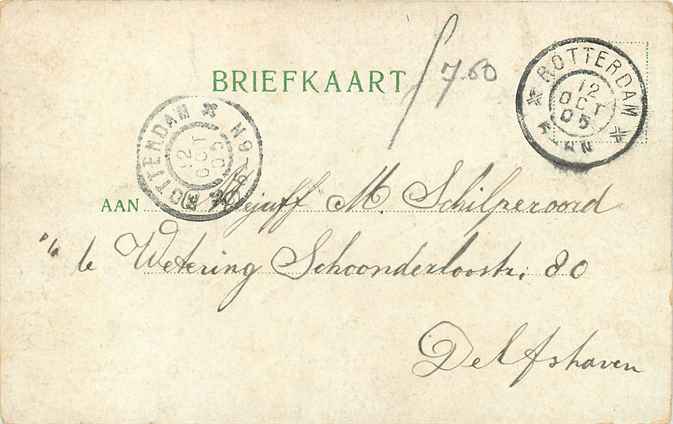 BRIEFKAART
7.60
ROTTERDAM
12
OCT
05
ROTTERDAM
12
OCT
05
AAN Mejuff M. Schilperoord
de Wetering Schoonderloostr. 80
Delfshaven